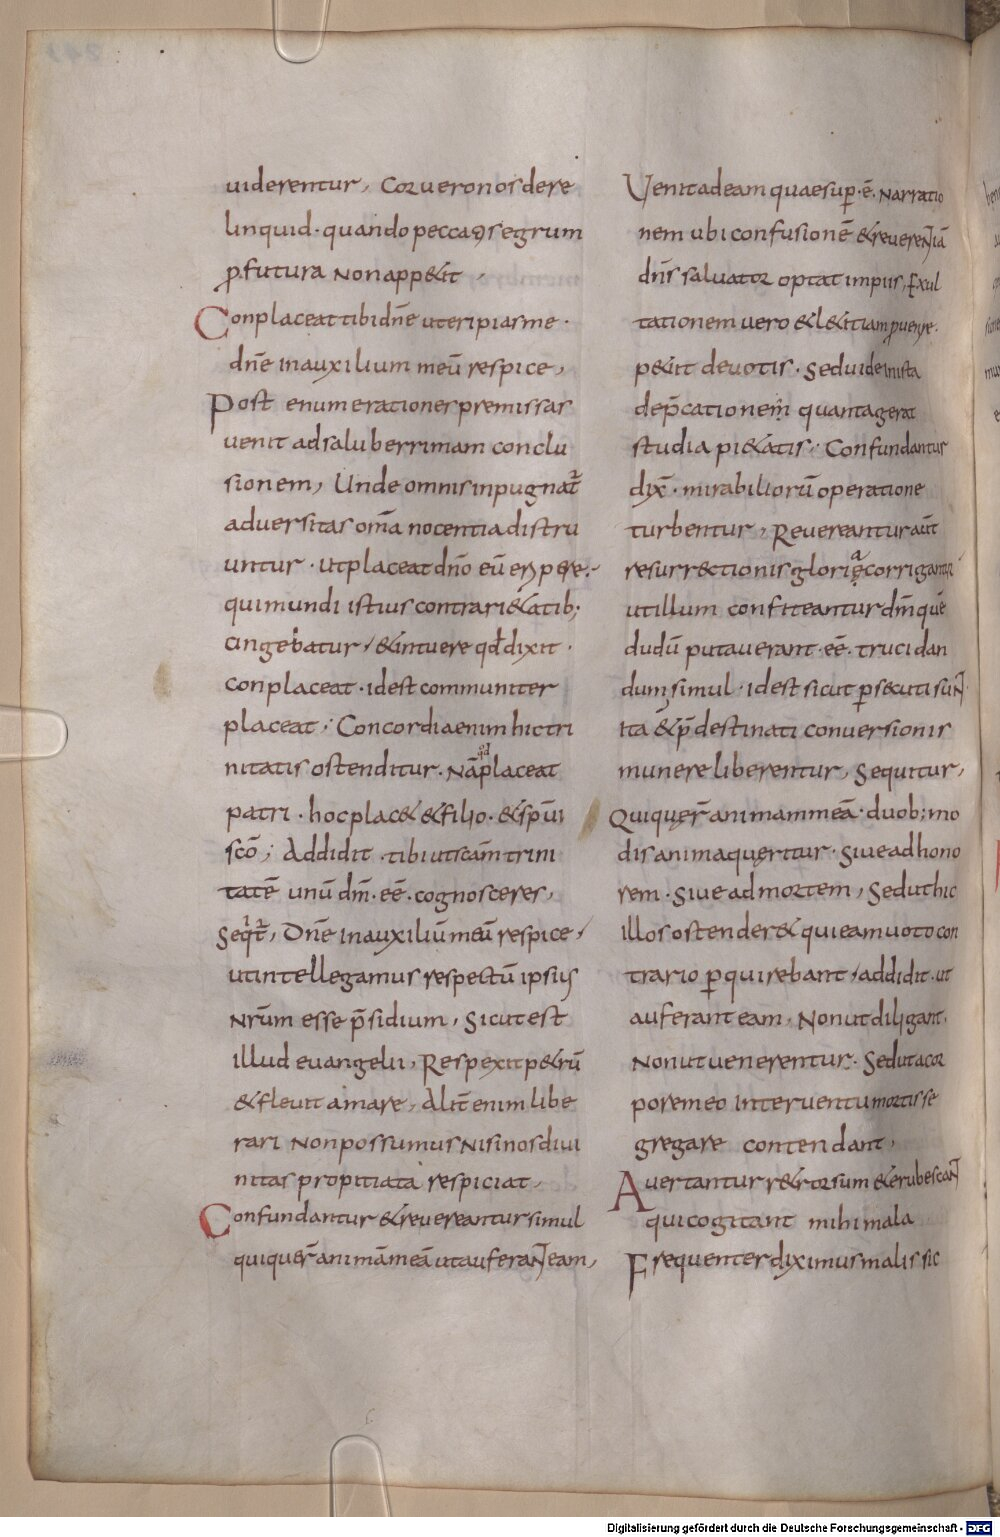 uiderentur, Cor uero nos dere
linquid · quando peccans egrum
ꝓfutura non appetit ,
Conplaceat tibi dn̄e ut eripias me ·
dn̄e in auxilium meū respice,
Post enumerationes premissas
uenit ad saluberrimam conclu
sionem, Unde omnis inpugnat̄
aduersitas om̄a nocentia distru
untur · ut placeat dn̄o eū eripere,
qui mundi istius contrarietatib;
cingebatur, & intuere qd̄ dixit ·
conplaceat · id est communiter
placeat; Concordia enim hic tri
nitatis ostenditur. Nā qd placeat
patri · hoc placet & filio · & sp̄ui
sc̄o; Addidit · tibi ut sc̄am trini
tatē unū dm̄ · eē · cognosceres,
Seqt̄, Dn̄e in auxiliū meū respice,
ut intellegamus respectū ipsius
nr̄um esse p̄sidium, Sicut est
illud euangelii, Respexit petrū
& fleuit amare, Alit̄ enim libe
rari non possumus nisi nos diui
nitas propitiata respiciat,
Confundantur & reuereantur simul
qui quer̄ animā meā ut auferant eam,
Uenit ad eam quae sup̄ · ē · narratio
nem ubi confusionē & reuerentiā
dn̄s saluator optat impiis, Exul
tationem uero & letitiam puenire ·
petit deuotis · Sed uide in ista
dep̄cationem quanta gerat
studia pietatis, Confundantur
dix̄ · mirabiliorū operatione
turbentur, Reuereantur aūt
resurrectionis gloria corrigantur
ut illum confiteantur dm̄ quē
dudū putauerant · eē · truci dan
dum, simul · id est sicut ꝑsecuti sunt
ita & p̄destinati conuersionis
munere liberentur, Sequitur,
Qui quęr̄ animam meā · duob; mo
dis anima quęritur · Siue ad hono
rem · Siue ad mortem, Sed ut hic
illos ostenderet qui eam uoto con
trario ꝑquirebant, addidit · ut
auferant eam, Non ut diligant ·
Non ut uenerentur · Sed ut a cor
pore meo interuentu mortis se
gregare contendant,
Auertantur retrorsum & erubescant
qui cogitant mihi mala
Frequenter diximus malis sic
Digitalisierung gefördert durch die Deutsche Forschungsgemeinschaft - DFG